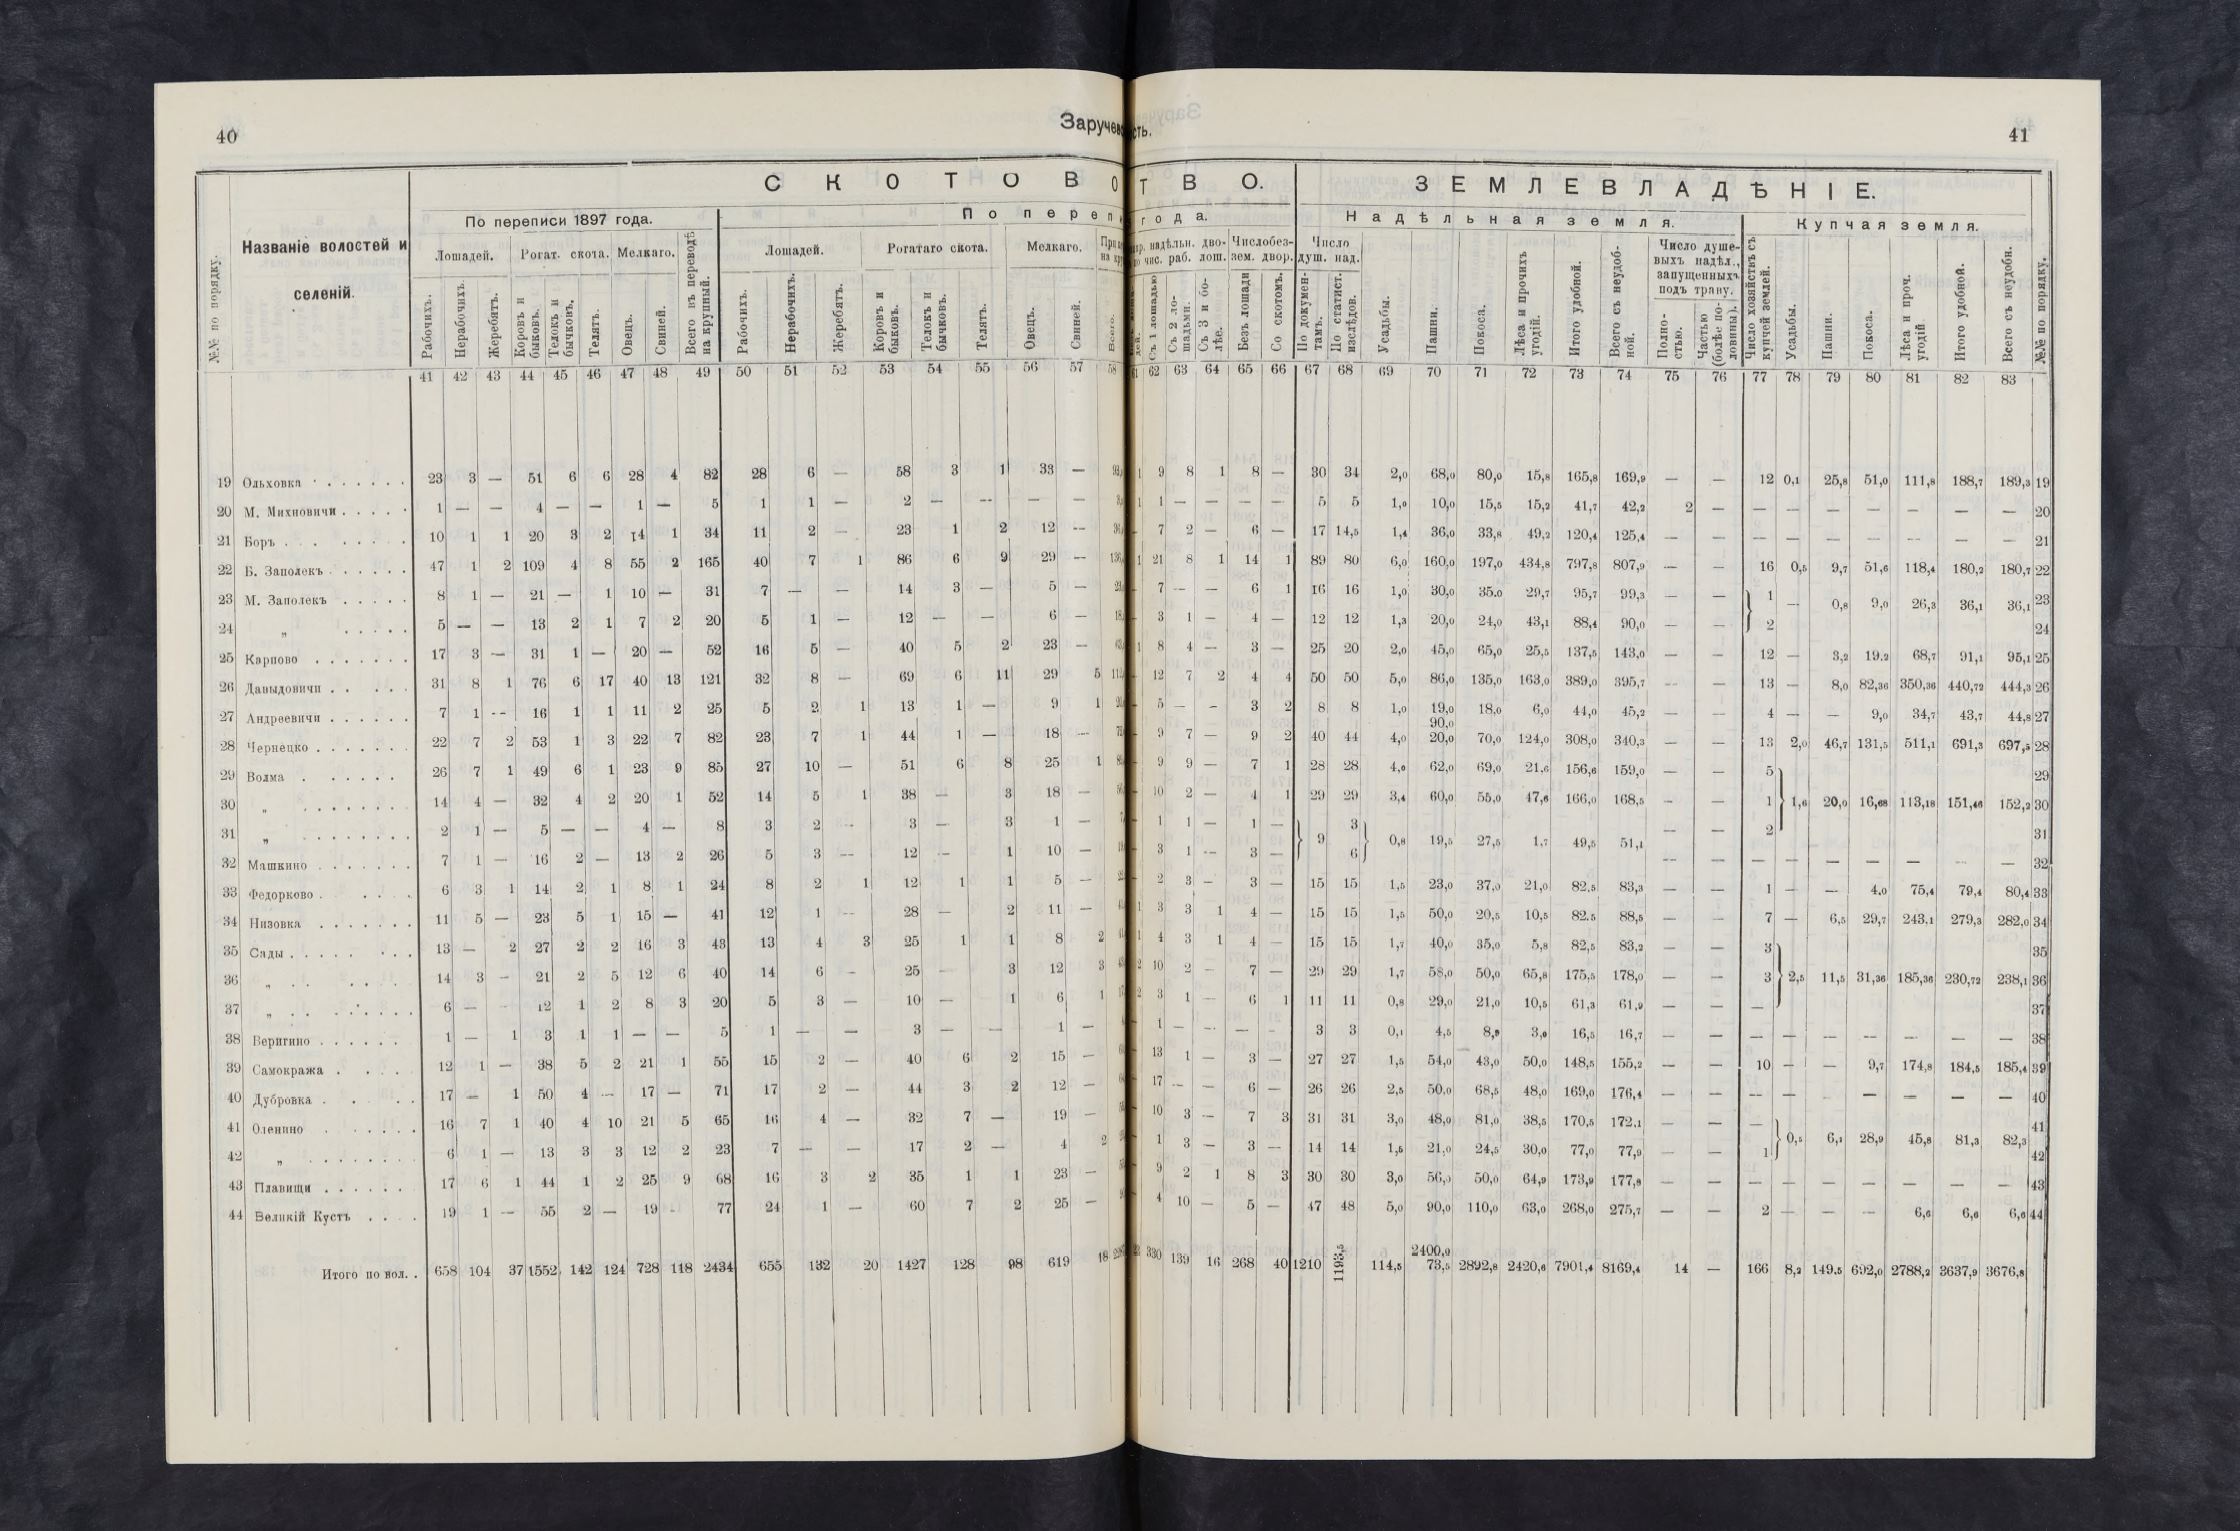 40
Заручевс
сть.
41
С К О Т О В О
Т В О.
З Е М Л Е В Л А Д Ѣ Н І Е.
№№ по порядку.
Названіе волостей и
селеній.
По переписи 1897 года.
По переп
года.
Надѣльная земля.
Купчая земля.
Лошадей. Рогат. скота. Мелкаго. Всего въ переводѣ на крупный.
Лошадей. Рогатаго скота. Мелкаго.
надѣльн. дво- Число без- Число Число душе-
чис. раб. лош. зем. двор. душ. над. выхъ надѣл.,
запущенныхъ
подъ траву.
Рабочихъ. Нерабочихъ. Жеребятъ. Коровъ и быковъ. Телокъ и бычковъ. Телятъ. Овецъ. Свиней.
Рабочихъ. Нерабочихъ. Жеребятъ. Коровъ и быковъ. Телокъ и бычковъ. Телятъ. Овецъ. Свиней. Всего.
Съ 1 лошадью Съ 2 ло-шадьми. Съ 3 и бо-лѣе. Безъ лошади Со скотомъ. По докумен-тамъ. По статист. изслѣдов. Усадьбы. Пашни. Покоса. Лѣса и прочихъ угодій. Итого удобной. Всего съ неудоб-ной. Полно-стью. Частью (болѣе по-ловины). Число хозяйствъ съ купчей землей. Усадьбы. Пашни. Покоса. Лѣса и проч. угодій Итого удобной. Всего съ неудобн. №№ по порядку.
41 42 43 44 45 46 47 48 49 50 51 52 53 54 55 56 57 58 61 62 63 64 65 66 67 68 69 70 71 72 73 74 75 76 77 78 79 80 81 82 83
19 Ольховка 23 3 — 51 6 6 28 4 82 28 6 — 58 3 1 33 — 1 9 8 1 8 — 30 34 2,0 68,0 80,0 15,8 165,8 169,9 — — 12 0,1 25,8 51,0 111,8 188,7 189,3 19
20 М. Михновичи 1 — — 4 — — 1 — 5 1 1 — 2 — — — — 1 1 — — — — 5 5 1,0 10,0 15,5 15,2 41,7 42,2 2 — — — — — — — — 20
21 Боръ 10 1 1 20 3 2 14 1 34 11 2 — 23 1 2 12 — — 7 2 — 6 — 17 14,5 1,4 36,0 33,8 49,2 120,4 125,4 — — — — — — — — — 21
22 Б. Заполекъ 47 1 2 109 4 8 55 2 165 40 7 1 86 6 9 29 — 1 21 8 1 14 1 89 80 6,0 160,0 197,0 434,8 797,8 807,9 — — 16 0,5 9,7 51,6 118,4 180,2 180,7 22
23 М. Заполекъ 8 1 — 21 — 1 10 — 31 7 — — 14 3 — 5 — — 7 — — 6 1 16 16 1,0 30,0 35,0 29,7 95,7 99,3 — — 1 — 0,8 9,0 26,3 36,1 36,1 23
24 „ 5 — — 13 2 1 7 2 20 5 1 — 12 — — 6 — — 3 1 — 4 — 12 12 1,3 20,0 24,0 43,1 88,4 90,0 — — 2 24
25 Карпово 17 3 — 31 1 — 20 — 52 16 5 — 40 5 2 23 — 1 8 4 — 3 — 25 20 2,0 45,0 65,0 25,5 137,5 143,0 — — 12 — 3,2 19,2 68,7 91,1 95,1 25
26 Давыдовичи 31 8 1 76 6 17 40 13 121 32 8 — 69 6 11 29 5 — 12 7 2 4 4 50 50 5,0 86,0 135,0 163,0 389,0 395,7 — — 13 — 8,0 82,36 350,36 440,72 444,3 26
27 Андреевичи 7 1 — 16 1 1 11 2 25 5 2 1 13 1 — 9 1 — 5 — — 3 2 8 8 1,0 19,0 18,0 6,0 44,0 45,2 — — 4 — — 9,0 34,7 43,7 44,8 27
90,0
28 Чернецко 22 7 2 53 1 3 22 7 82 23 7 1 44 1 — 18 — — 9 7 — 9 2 40 44 4,0 20,0 70,0 124,0 308,0 340,3 — — 13 2,0 46,7 131,5 511,1 691,3 697,5 28
29 Волма 26 7 1 49 6 1 23 9 85 27 10 — 51 6 8 25 1 — 9 9 — 7 1 28 28 4,0 62,0 69,0 21,6 156,6 159,0 — — 5 29
30 „ 14 4 — 32 4 2 20 1 52 14 5 1 38 — 3 18 — — 10 2 — 4 1 29 29 3,4 60,0 55,0 47,6 166,0 168,5 — — 1 1,6 20,0 16,68 113,18 151,46 152,2 30
31 „ 2 1 — 5 — — 4 — 8 3 2 — 3 — 3 1 — — 1 1 — 1 — 9 3 0,8 19,5 27,5 1,7 49,5 51,1 — — 2 31
32 Машкино 7 1 — 16 2 — 13 2 26 5 3 — 12 — 1 10 — — 3 1 — 3 — 6 — — — — — — — — — 32
33 Федорково 6 3 1 14 2 1 8 1 24 8 2 1 12 1 1 5 — — 2 3 — 3 — 15 15 1,5 23,0 37,0 21,0 82,5 83,3 — — 1 — — 4,0 75,4 79,4 80,4 33
34 Низовка 11 5 — 23 5 1 15 — 41 12 1 — 28 — 2 11 — 1 3 3 1 4 — 15 15 1,5 50,0 20,5 10,5 82,5 88,5 — — 7 — 6,5 29,7 243,1 279,3 282,0 34
35 Сады 13 — 2 27 2 2 16 3 43 13 4 3 25 1 1 8 2 1 4 3 1 4 — 15 15 1,7 40,0 35,0 5,8 82,5 83,2 — — 3 35
36 „ 14 3 — 21 2 5 12 6 40 14 6 — 25 — 3 12 3 2 10 2 — 7 — 29 29 1,7 58,0 50,0 65,8 175,5 178,0 — — 3 2,5 11,5 31,36 185,36 230,72 238,1 36
37 „ 6 — — 12 1 2 8 3 20 5 3 — 10 — 1 6 1 2 3 1 — 6 1 11 11 0,8 29,0 21,0 10,5 61,3 61,9 — — — 37
38 Веригино 1 — 1 3 1 1 — — 5 1 — — 3 — — 1 — — 1 — — — — 3 3 0,1 4,5 8,9 3,0 16,5 16,7 — — — — — — — — — 38
39 Самокража 12 1 — 38 5 2 21 1 55 15 2 — 40 6 2 15 — — 13 1 — 3 — 27 27 1,5 54,0 43,0 50,0 148,5 155,2 — — 10 — — 9,7 174,8 184,5 185,4 39
40 Дубровка 17 — 1 50 4 — 17 — 71 17 2 — 44 3 2 12 — — 17 — — 6 — 26 26 2,5 50,0 68,5 48,0 169,0 176,4 — — — — — — — — — 40
41 Оленино 16 7 1 40 4 10 21 5 65 16 4 — 32 7 — 19 — — 10 3 — 7 3 31 31 3,0 48,0 81,0 38,5 170,5 172,1 — — — 0,5 6,1 28,9 45,8 81,3 82,3 41
42 „ 6 1 — 13 3 3 12 2 23 7 — — 17 2 — 4 2 — 1 3 — 3 — 14 14 1,5 21,0 24,5 30,0 77,0 77,9 — — 1 42
43 Плавищи 17 6 1 44 1 2 25 9 68 16 3 2 35 1 1 23 — — 9 2 1 8 3 30 30 3,0 56,0 50,0 64,9 173,9 177,8 — — — — — — — — — 43
44 Великій Кустъ 19 1 — 55 2 — 19 - 77 24 1 — 60 7 2 25 — — 4 10 — 5 — 47 48 5,0 90,0 110,0 63,0 268,0 275,7 — — 2 — — — 6,6 6,6 6,6 44
2400,9
Итого по вол. 658 104 37 1552 142 124 728 118 2434 655 132 20 1427 128 98 619 18 330 139 16 268 40 1210 1193,5 114,5 73,5 2892,8 2420,6 7901,4 8169,4 14 — 166 8,2 149,5 692,0 2788,2 3637,9 3676,8